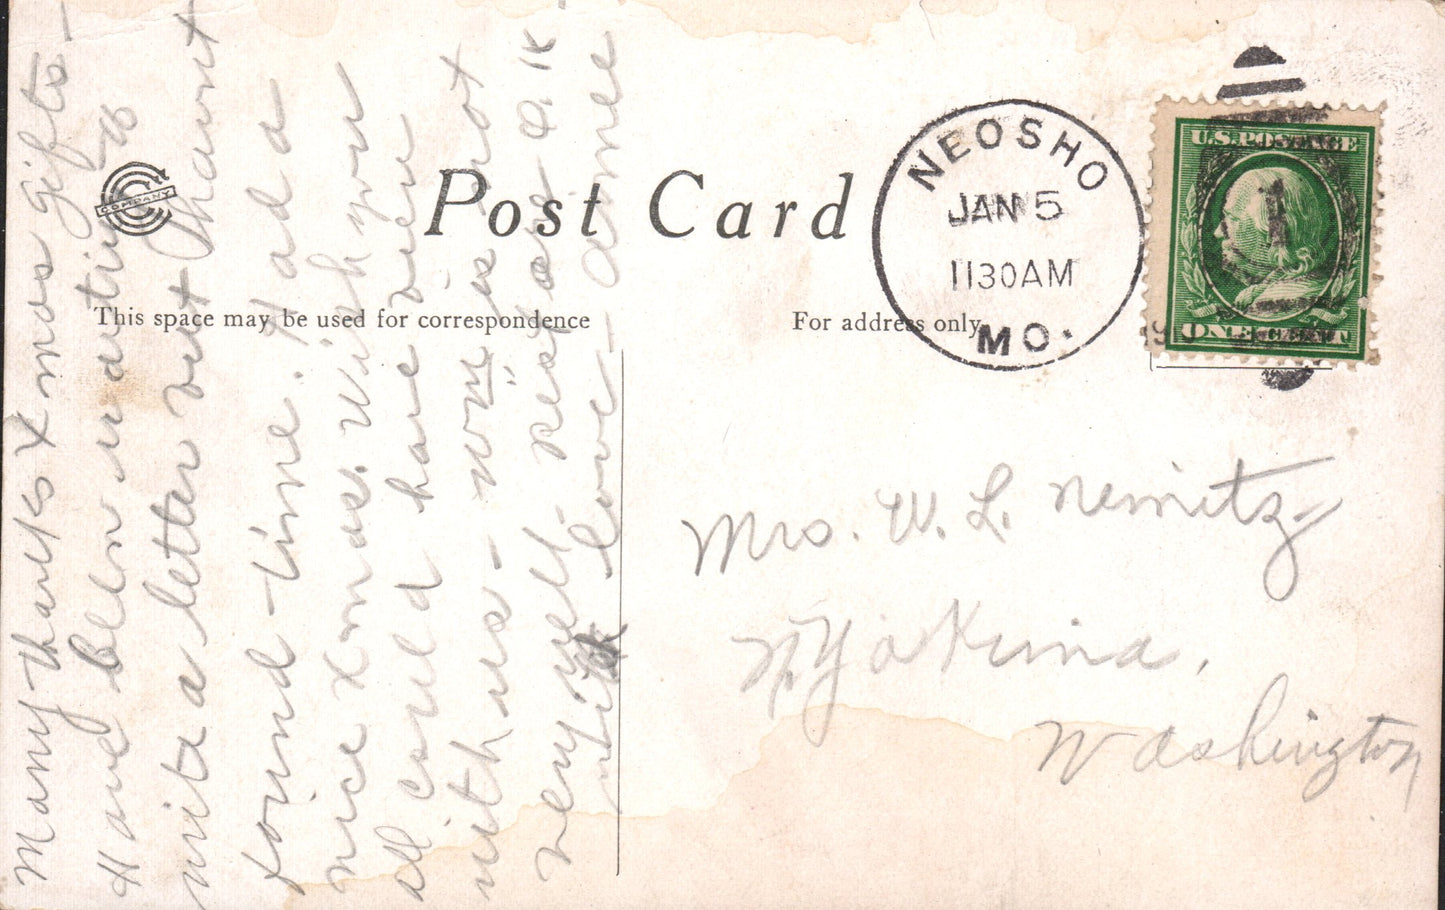 Many thanks Xmas gifts -
Have been waiting to
write a letter but havent
found time. Had a
nice Xmas. Wish you
all could have been
with us - is not
very well. rest are O.K
with love -
COMPANY
Post Card
This space may be used for correspondence
For address only
NEOSHO
JAN 5
1130AM
MO.
U.S. POSTAGE
1
ONE CENT
Mrs. W. L. Nemitz
N Yakima,
Washington